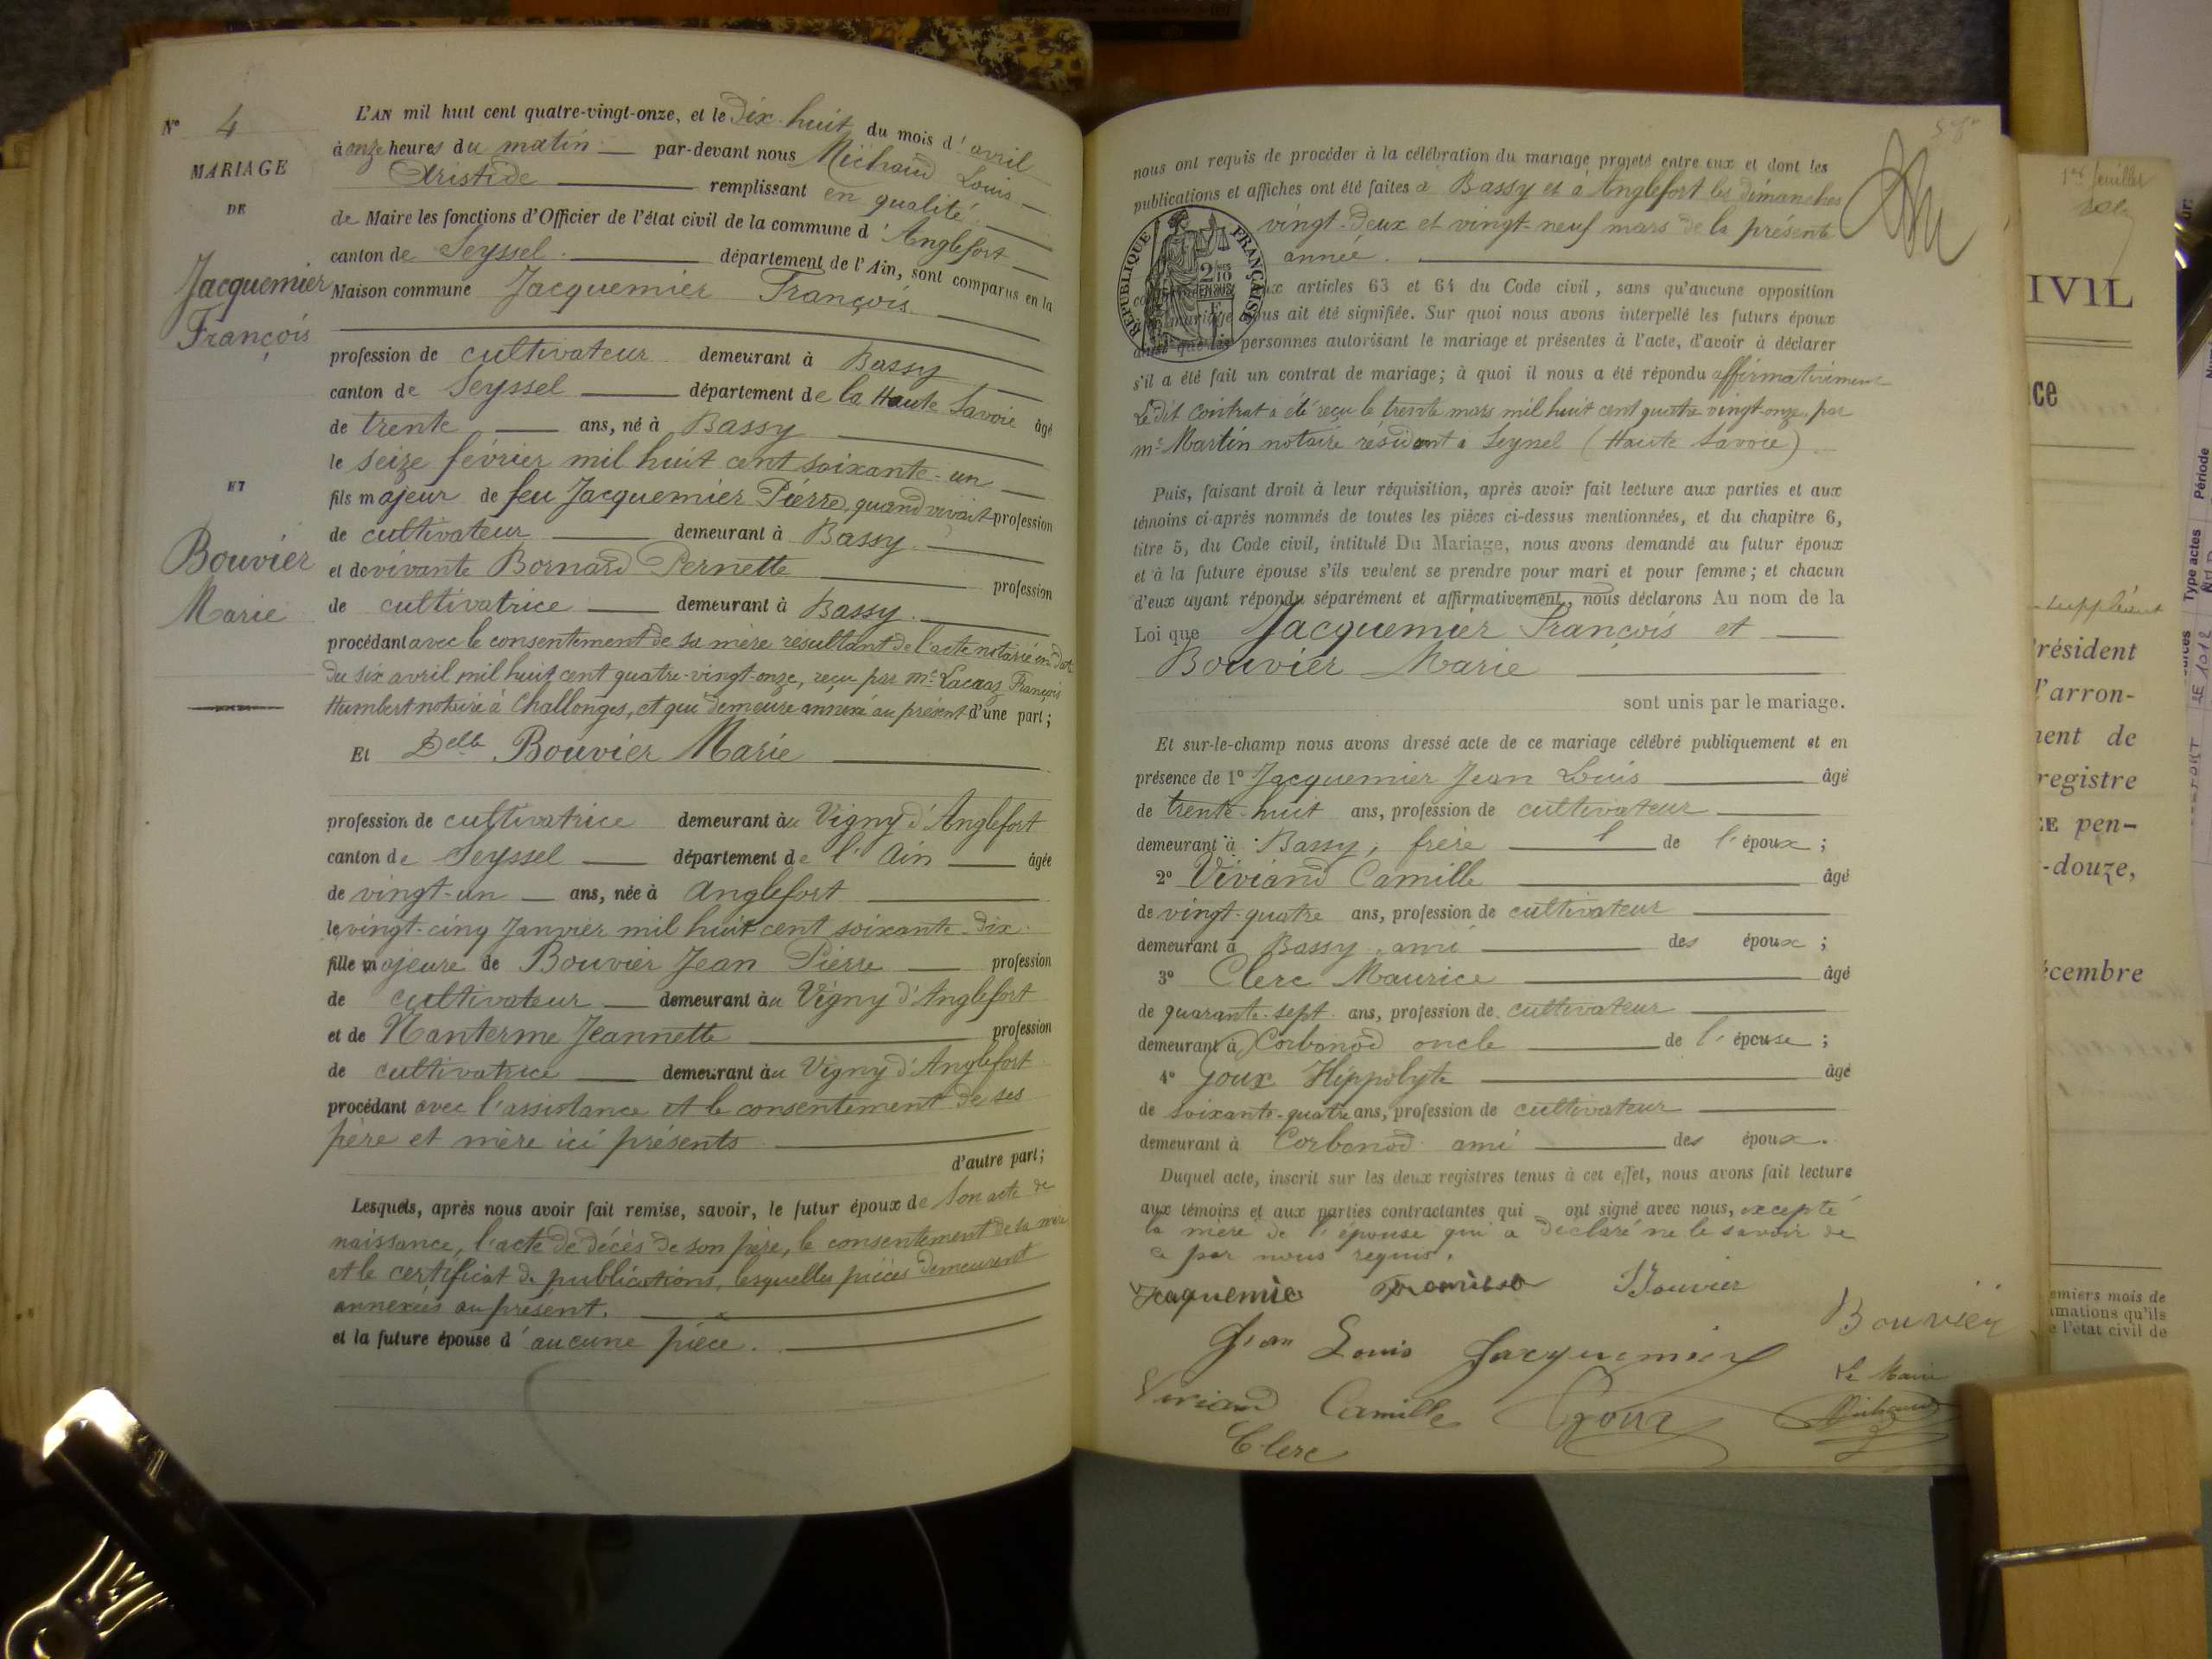 N° 4
MARIAGE
DE
Jacquemier
François
ET
Bouvier
Marie
L'AN mil huit cent quatre-vingt-onze, et le Dix-huit du mois d'avril
à onze heures du matin par-devant nous Michaud Louis
Aristide remplissant en qualité
de Maire les fonctions d'Officier de l'état civil de la commune d'Anglefort
canton de Seyssel département de l'Ain, sont comparus en la
Maison commune Jacquemier François
profession de cultivateur demeurant à Bassy
canton de Seyssel département de la Haute Savoie âgé
de trente ans, né à Bassy
le seize février mil huit cent soixante-un
fils majeur de feu Jacquemier Pierre, quand vivait profession
de cultivateur demeurant à Bassy
et de vivante Bornard Pernette profession
de cultivatrice demeurant à Bassy
procédant avec le consentement de sa mère résultant de l'acte notarié en date
du six avril mil huit cent quatre-vingt-onze, reçu par Me Lacroaz François
Humbert notaire à Challonges, et qui demeure annexé au présent d'une part;
Et Delle Bouvier Marie
profession de cultivatrice demeurant au Vigny d'Anglefort
canton de Seyssel département de l'Ain âgée
de vingt-un ans, née à Anglefort
le vingt-cinq Janvier mil huit cent soixante-dix
fille majeure de Bouvier Jean Pierre profession
de cultivateur demeurant au Vigny d'Anglefort
et de Nanterme Jeannette profession
de cultivatrice demeurant au Vigny d'Anglefort
procédant avec l'assistance et le consentement de ses
père et mère ici présents
d'autre part;
Lesquels, après nous avoir fait remise, savoir, le futur époux de son acte de
naissance, l'acte de décès de son père, le consentement de sa mère
et le certificat de publications, lesquelles pièces demeurent
annexées au présent.
et la future épouse d'aucune pièce.
nous ont requis de procéder à la célébration du mariage projeté entre eux et dont les
publications et affiches ont été faites à Bassy et à Anglefort les dimanches
vingt-deux et vingt-neuf mars de la présente
année.
RÉPUBLIQUE FRANÇAISE
aux articles 63 et 64 du Code civil, sans qu'aucune opposition
mariage nous ait été signifiée. Sur quoi nous avons interpellé les futurs époux
ainsi que les personnes autorisant le mariage et présentes à l'acte, d'avoir à déclarer
s'il a été fait un contrat de mariage; à quoi il nous a été répondu affirmativement
Le dit contrat a été reçu le trente mars mil huit cent quatre-vingt-onze par
me Martin notaire résidant à Seyssel (Haute Savoie)
Puis, faisant droit à leur réquisition, après avoir fait lecture aux parties et aux
témoins ci-après nommés de toutes les pièces ci-dessus mentionnées, et du chapitre 6,
titre 5, du Code civil, intitulé Du Mariage, nous avons demandé au futur époux
et à la future épouse s'ils veulent se prendre pour mari et pour femme; et chacun
d'eux ayant répondu séparément et affirmativement, nous déclarons Au nom de la
Loi que Jacquemier François et
Bouvier Marie
sont unis par le mariage.
Et sur-le-champ nous avons dressé acte de ce mariage célébré publiquement et en
présence de 1° Jacquemier Jean Louis âgé
de trente-huit ans, profession de cultivateur
demeurant à Bassy, frère de l'époux;
2° Viviand Camille âgé
de vingt-quatre ans, profession de cultivateur
demeurant à Bassy, ami des époux;
3° Clerc Maurice âgé
de quarante-sept ans, profession de cultivateur
demeurant à Corbonod oncle de l'épouse;
4° Goux Hippolyte âgé
de soixante-quatre ans, profession de cultivateur
demeurant à Corbonod ami des époux.
Duquel acte, inscrit sur les deux registres tenus à cet effet, nous avons fait lecture
aux témoins et aux parties contractantes qui ont signé avec nous, excepté
la mère de l'épouse qui a déclaré ne le savoir de
ce par nous requis.
Jaquemie Bouvier
Bouvier
Jean Louis Jacquemier
Le Maire
Viviand Camille Goux Michaud
Clerc
1er feuillet
IVIL
suppléant
résident
l'arron-
ment de
registre
pen-
-douze,
écembre
emiers mois de
imations qu'ils
e l'état civil de
Type actes Période